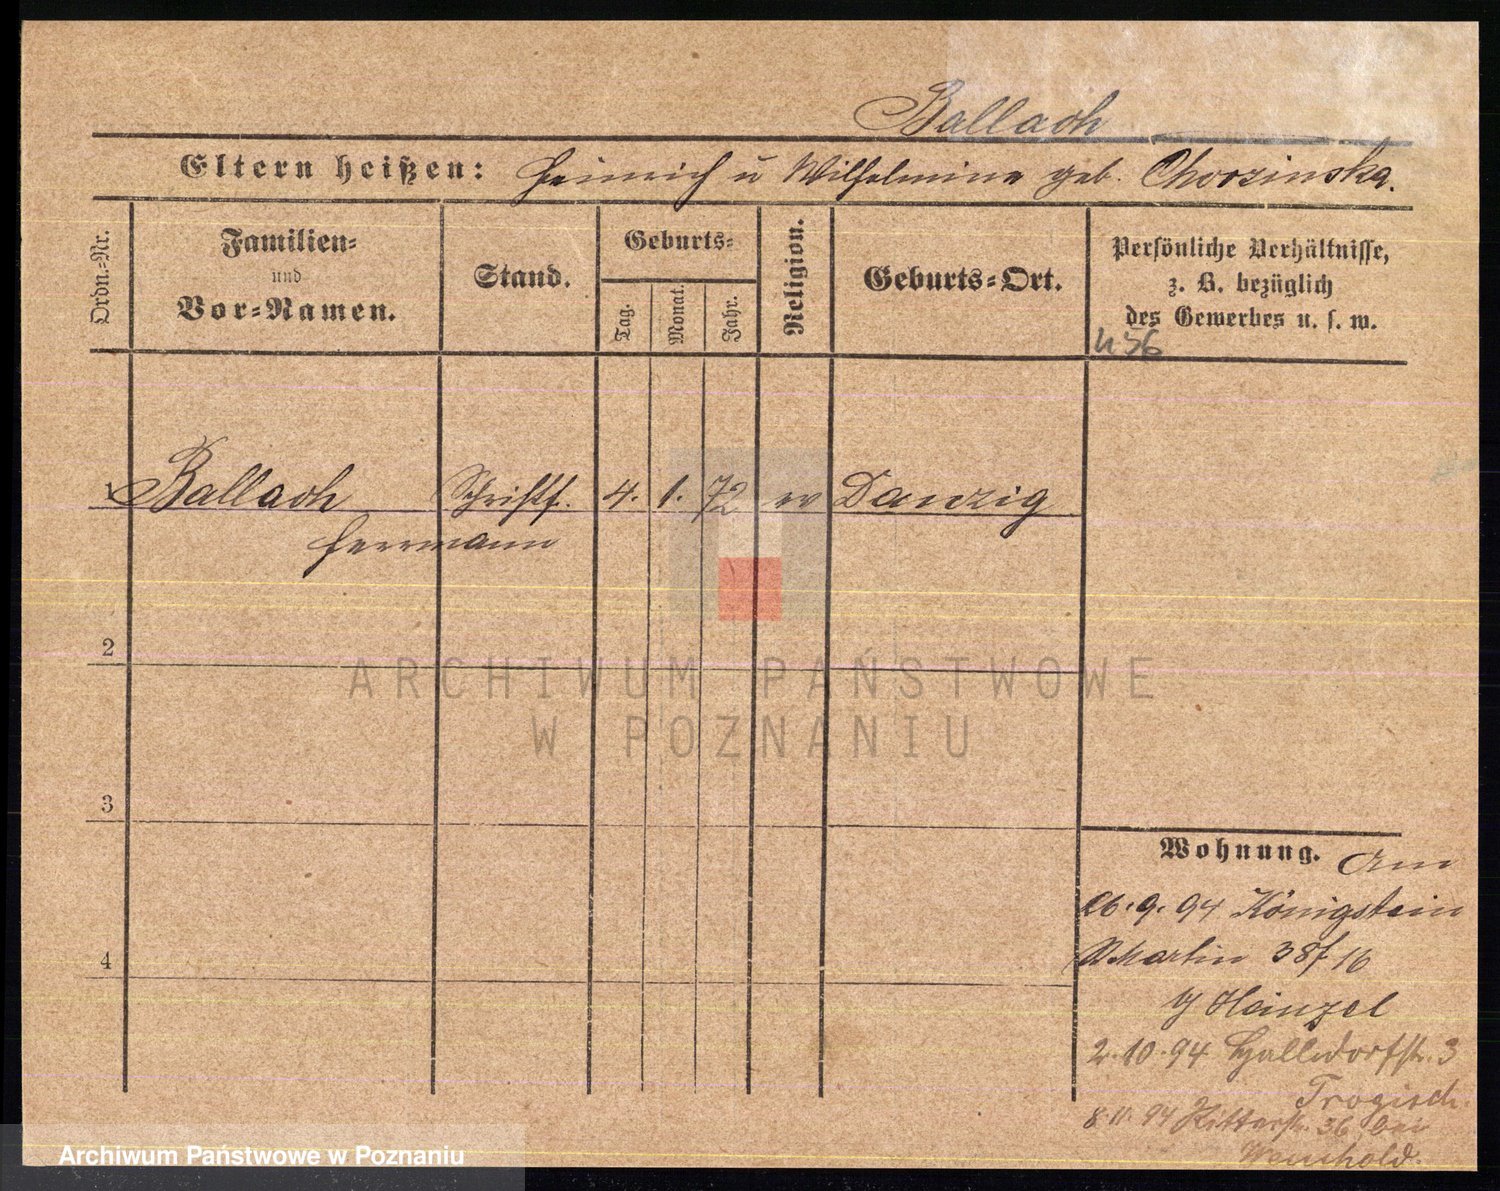 Ballach
Eltern heißen: Heinrich u Wilhelmine geb. Chorzinska.
Ordn.-Nr.
Familien-
und
Vor-Namen.
Stand.
Geburts-
Tag.
Monat.
Jahr.
Religion.
Geburts-Ort.
Persönliche Verhältnisse,
z. B. bezüglich
des Gewerbes u. s. w.
1 Ballach Schriftf. 4. 1. 72 ev Danzig
Herrmann
2
3
4
Wohnung. Am
26.9.94 Königstein
Martin 38 16
Heinzel
2.10.94 Halldorfstr. 3
Trogisch.
8.11.94 Ritterstr. 36 bei
ARCHIWUM PAŃSTWOWE
W POZNANIU
Archiwum Państwowe w Poznaniu